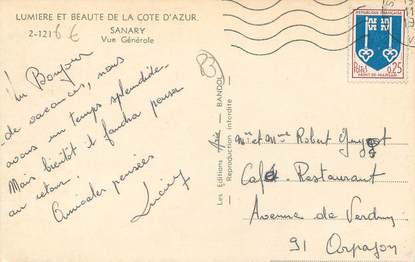 LUMIERE ET BEAUTE DE LA COTE D'AZUR.
2-121 6 €
SANARY
Vue Générale
83
Un Bonjour
de vacances, nous
avons un temps splendide.
Mais bientôt il faudra penser
au retour.
Amicales pensées
Les Editions Aris - BANDOL
Reproduction interdite
REPUBLIQUE FRANÇAISE
POSTES
0,25
MONT-DE-MARSAN
Mr et Mme Robert
Café Restaurant
Avenue de Verdun
91 Arpajon